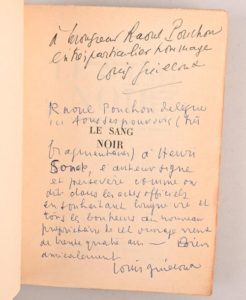 à Monsieur Raoul Pouchon
en très particulier hommage
Louis Guilloux
Raoul Pouchon délègue
ici tous ses pouvoirs (
LE SANG
NOIR
fragmentaires) à Henri
l'auteur signe
et persévère comme on
dit dans les actes officiels
en souhaitant longue vie et
tous les bonheurs au nouveau
propriétaire de cet ouvrage vieux
de trente quatre ans — Bien
amicalement
Louis Guilloux